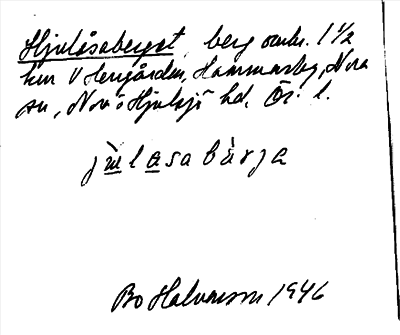 Hjulåsaberget, berg omkr. 1 1/2
km V Herrgården, Hammarby, Nora
sn, Nora o Hjulsjö hd, Ör. l.
jùlasabàrja
Bo Halvarsson 1946